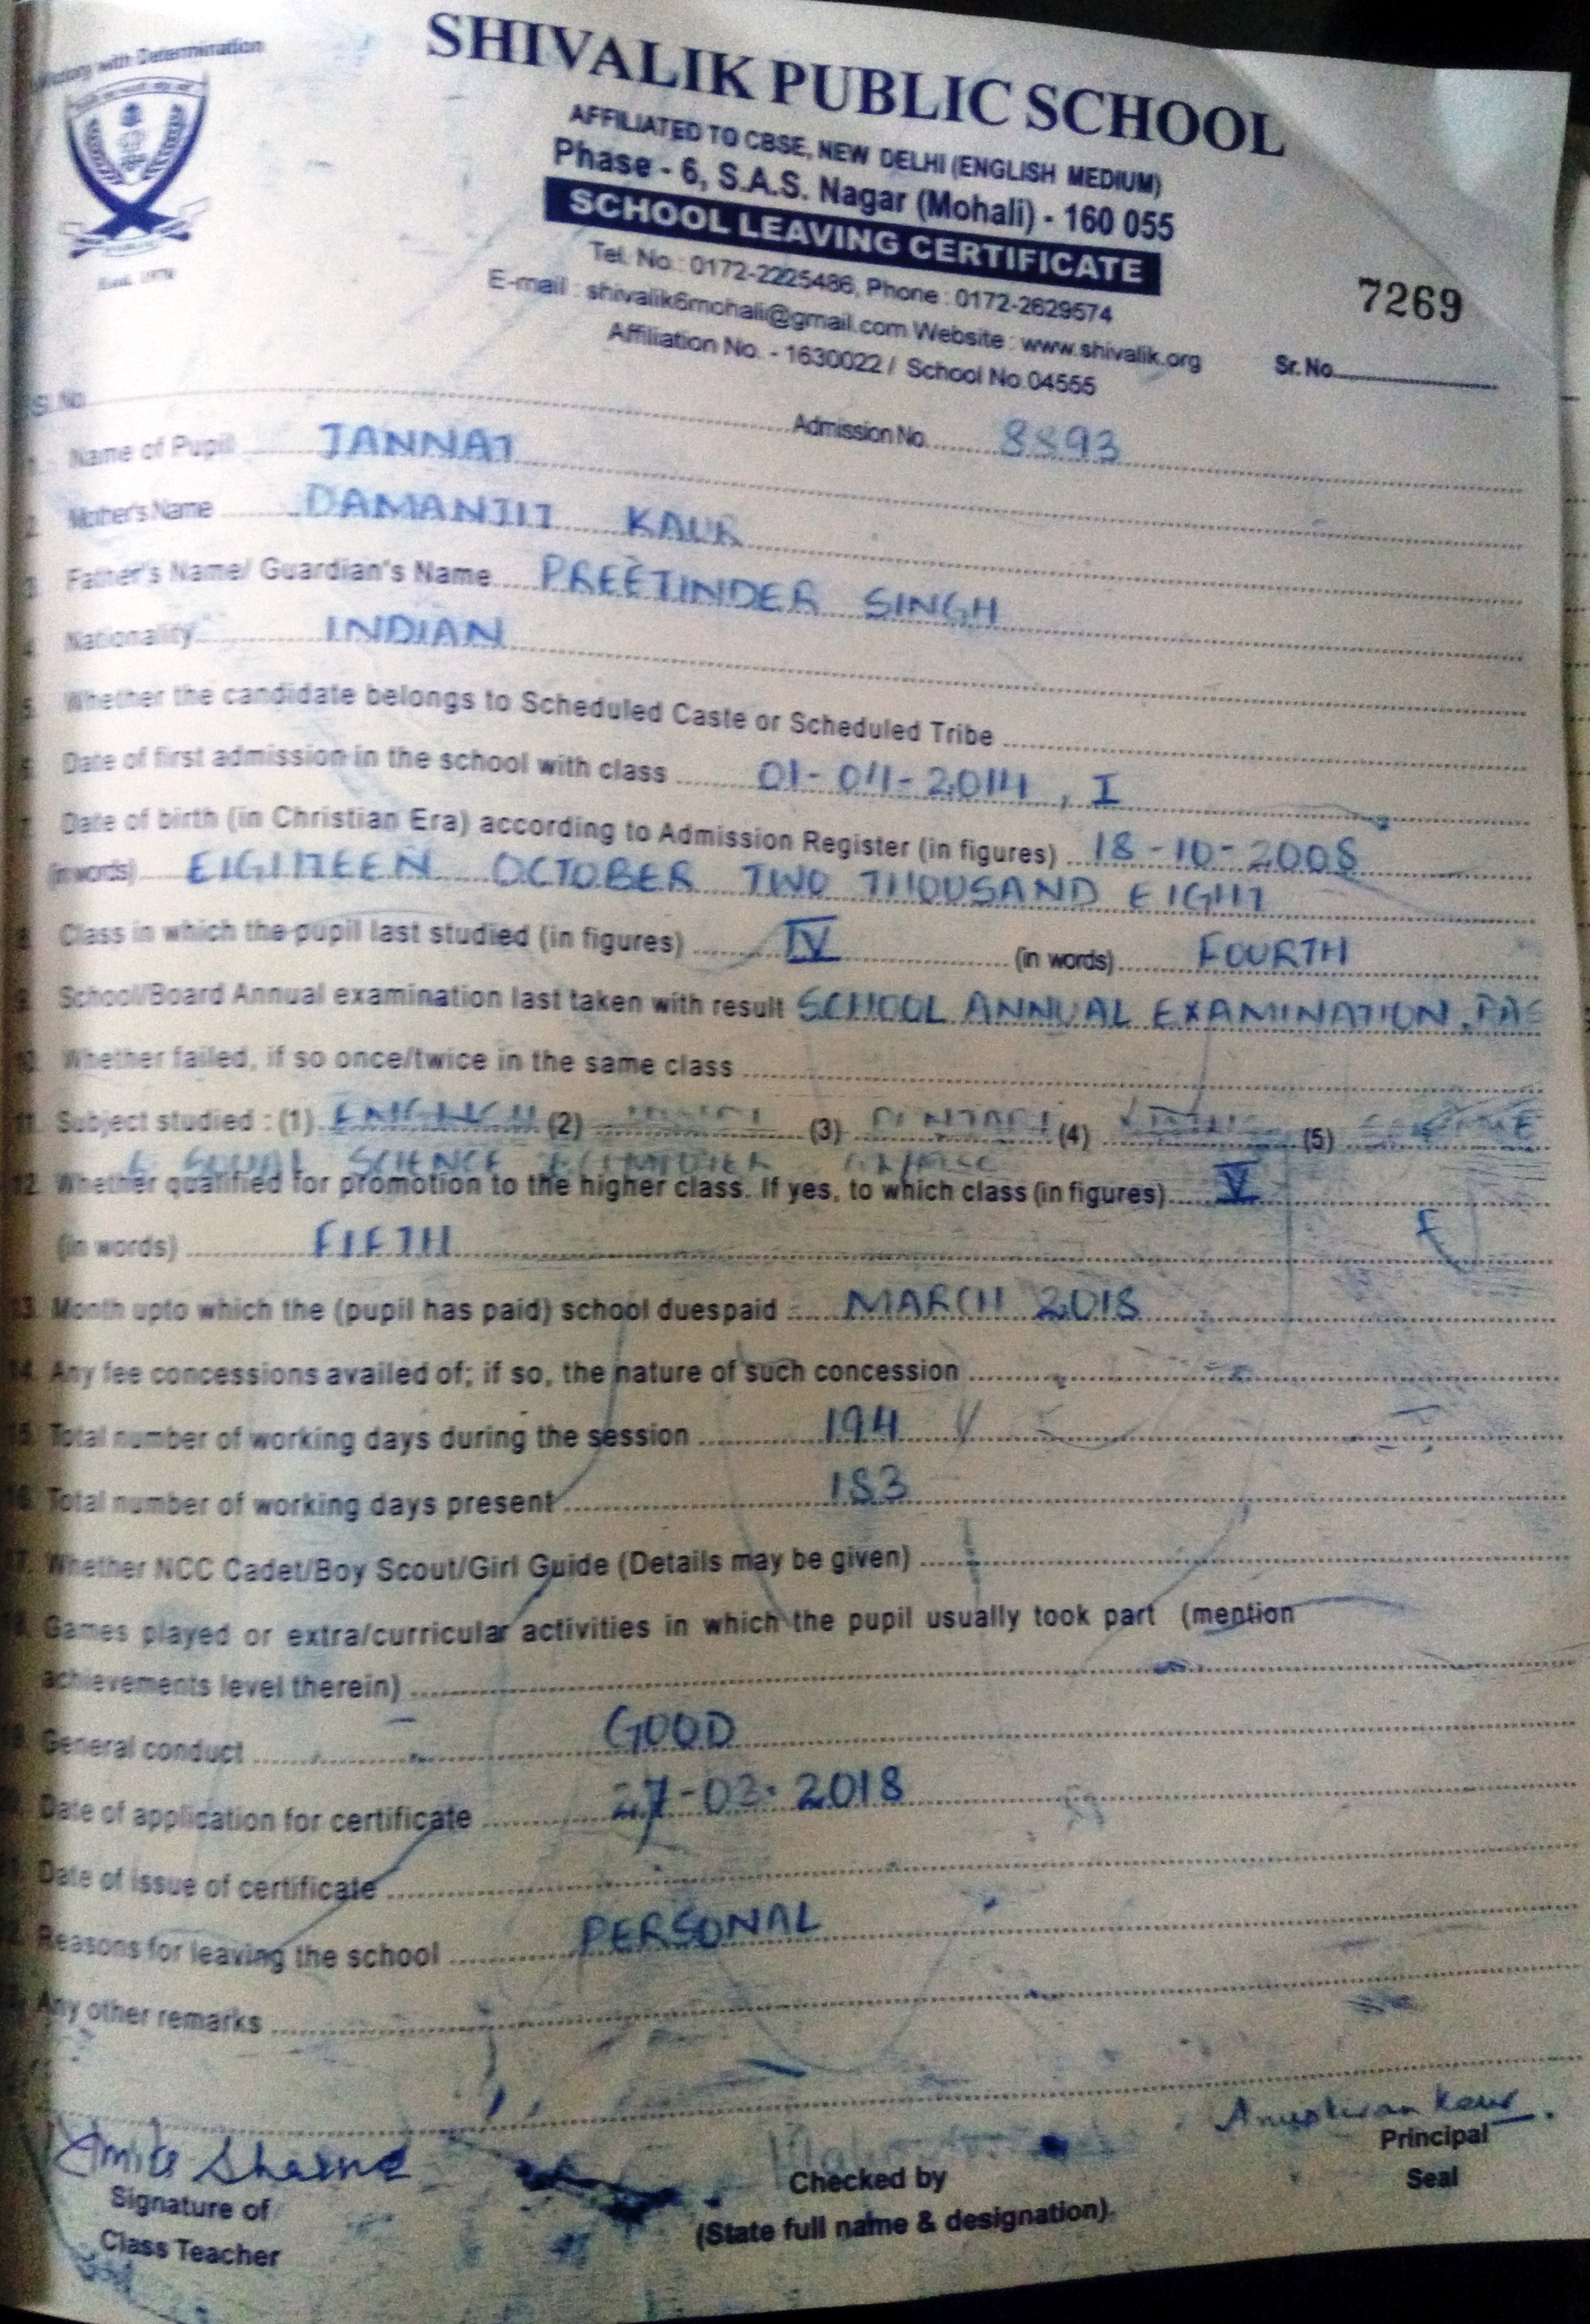 Victory with Determination
SHIVALIK PUBLIC SCHOOL
AFFILIATED TO CBSE, NEW DELHI (ENGLISH MEDIUM)
Phase - 6, S.A.S. Nagar (Mohali) - 160 055
SCHOOL LEAVING CERTIFICATE
Tel. No.: 0172-2225486, Phone : 0172-2629574
E-mail : shivalik6mohali@gmail.com Website : www.shivalik.org
Affiliation No. - 1630022 / School No.04555
7269
Sr. No.
Sl. No. Admission No. 8893
1. Name of Pupil JANNAT
2. Mother's Name DAMANJIT KAUR
3. Father's Name/ Guardian's Name PREETINDER SINGH
4. Nationality INDIAN
5. Whether the candidate belongs to Scheduled Caste or Scheduled Tribe
6. Date of first admission in the school with class 01-04-2014, I
7. Date of birth (in Christian Era) according to Admission Register (in figures) 18-10-2008
(in words) EIGHTEEN OCTOBER TWO THOUSAND EIGHT
8. Class in which the pupil last studied (in figures) IV (in words) FOURTH
9. School/Board Annual examination last taken with result SCHOOL ANNUAL EXAMINATION, PAS
10. Whether failed, if so once/twice in the same class
11. Subject studied : (1) ENGLISH (2) (3) PUNJABI (4) (5)
SOCIAL SCIENCE COMPUTER
12. Whether qualified for promotion to the higher class. If yes, to which class (in figures) V
(in words) FIFTH
13. Month upto which the (pupil has paid) school duespaid MARCH 2018
14. Any fee concessions availed of; if so, the nature of such concession
15. Total number of working days during the session 194
16. Total number of working days present 183
17. Whether NCC Cadet/Boy Scout/Girl Guide (Details may be given)
18. Games played or extra/curricular activities in which the pupil usually took part (mention
achievements level therein)
19. General conduct GOOD
20. Date of application for certificate 27-03-2018
Date of issue of certificate
Reasons for leaving the school PERSONAL
Any other remarks
Sharma Kaur
Signature of Class Teacher
Checked by
(State full name & designation)
Principal
Seal